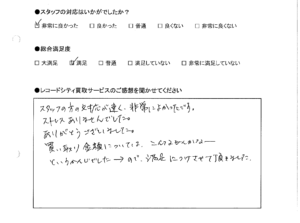 ●スタッフの対応はいかがでしたか?
☑非常に良かった □良かった □普通 □良くない □非常に良くない
●総合満足度
□大満足 ☑満足 □普通 □満足していない □非常に満足していない
●レコードシティ買取サービスのご感想を聞かせてください
スタッフの方の対応が速く、非常によかったです。
ストレスありませんでした。
ありがとうございました。
買い取り金額については、こんなもんかな〜
というかんじでした→ので、満足につけさせて頂きました。